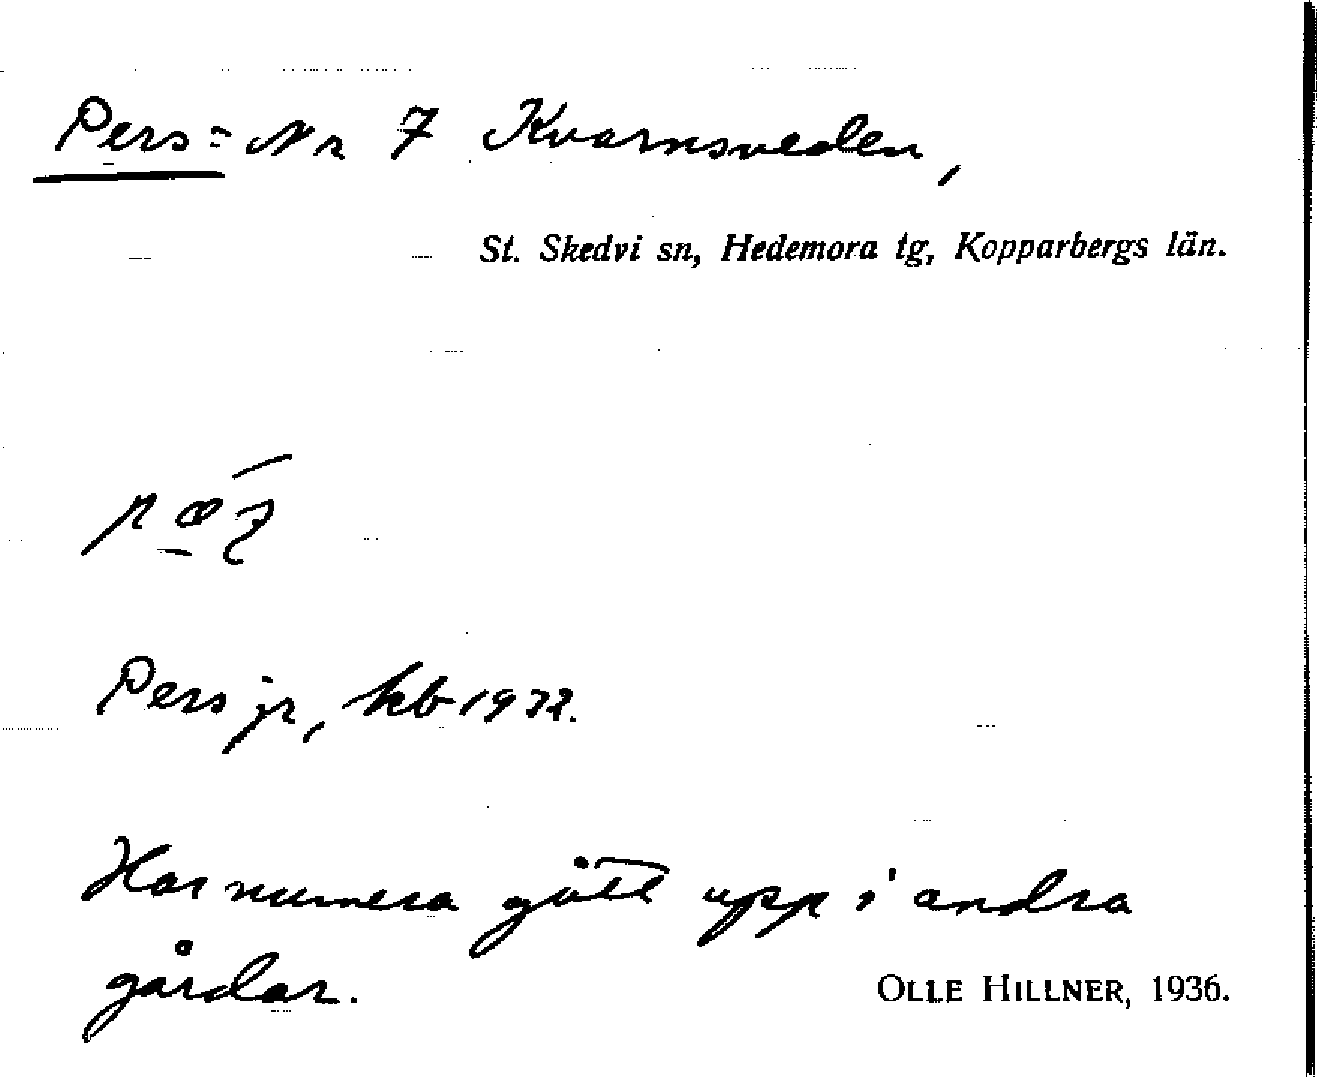 Pers = Nr 7 Kvarnsveden,
St. Skedvi sn, Hedemora tg, Kopparbergs län.
Pers jr, kb 1932.
Har numera gått upp i andra
gårdar.
OLLE HILLNER, 1936.